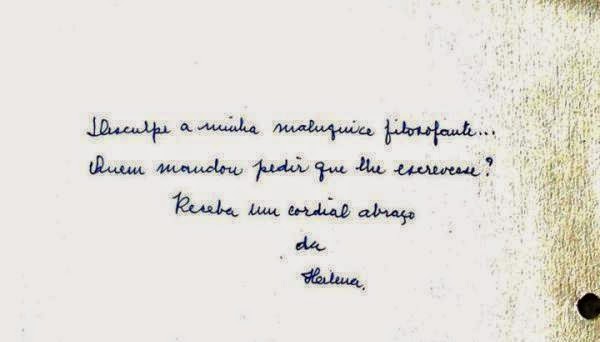 Desculpe a minha maluquice filosofante...
Quem mandou pedir que lhe escrevesse?
Receba um cordial abraço
da
Helena.